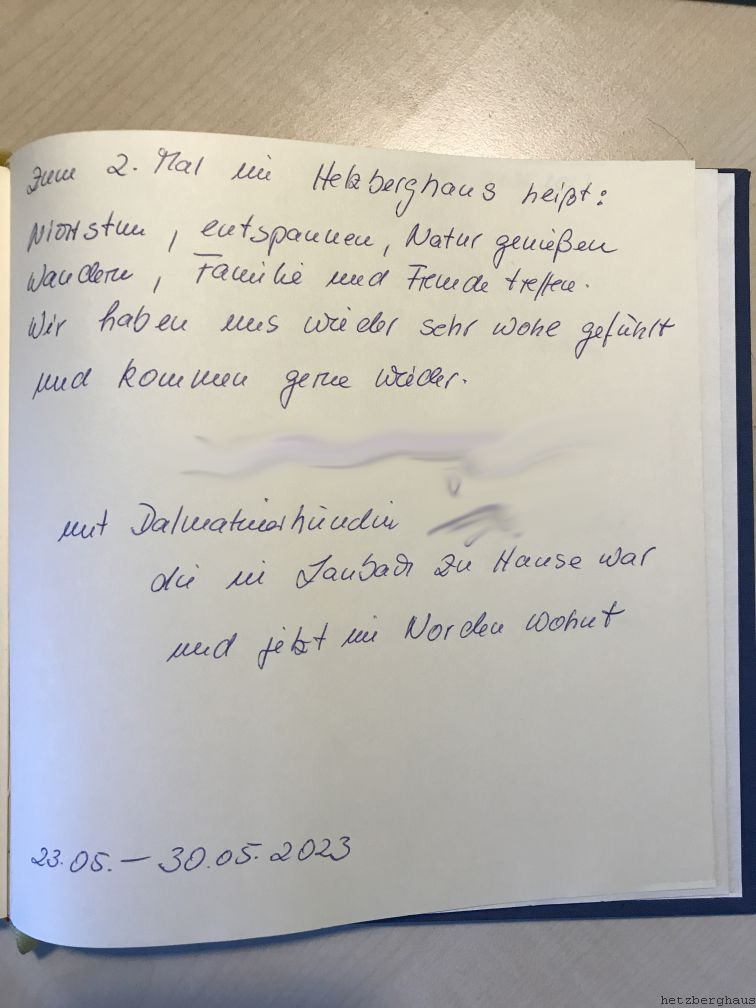 Zum 2. Mal im Hetzberghaus heißt:
Nichtstun, entspannen, Natur genießen
Wandern, Familie und Freunde treffen.
Wir haben uns wieder sehr wohl gefühlt
und kommen gerne wieder.
mit Dalmatinerhündin
die in Laubach zu Hause war
und jetzt im Norden wohnt
23.05. – 30.05.2023
hetzberghaus